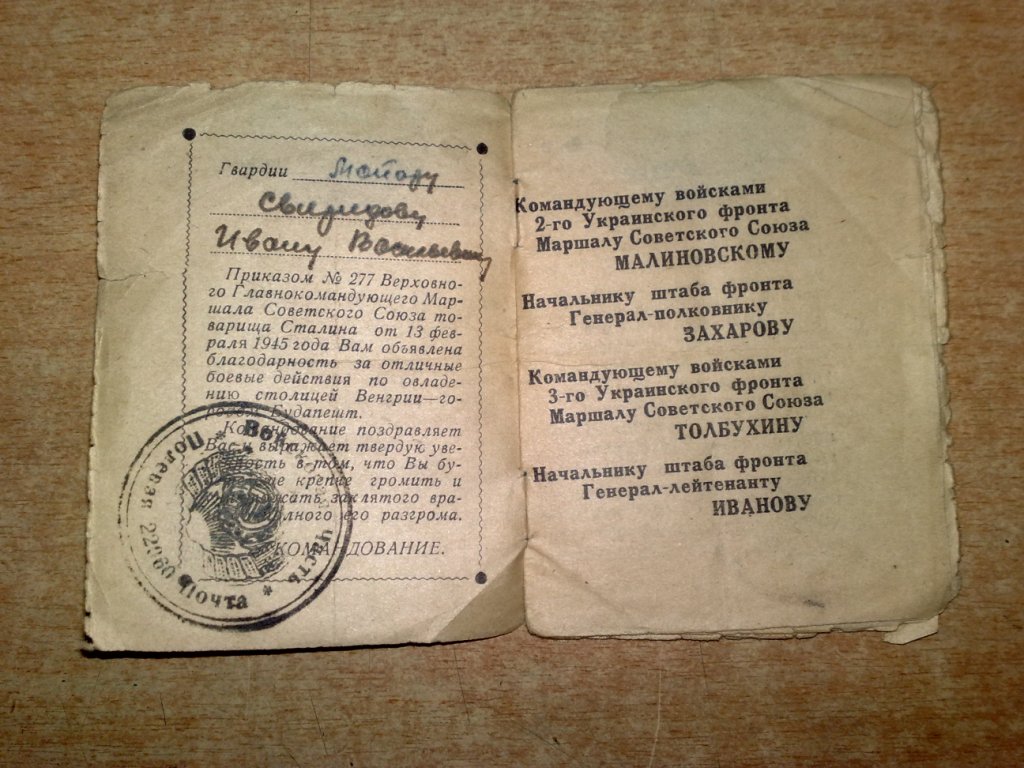 Гвардии Майору
Свиридову
Ивану Васильевичу
Приказом № 277 Верховно-
го Главнокомандующего Мар-
шала Советского Союза то-
варища Сталина от 13 фев-
раля 1945 года Вам объявлена
благодарность за отличные
боевые действия по овладе-
нию столицей Венгрии—го-
родом Будапешт.
Командование поздравляет
Вас и выражает твердую уве-
ренность в том, что Вы бу-
дете еще крепче громить и
заклятого вра-
полного его разгрома.
КОМАНДОВАНИЕ.
часть * Полевая Почта *
Командующему войсками
2-го Украинского фронта
Маршалу Советского Союза
МАЛИНОВСКОМУ
Начальнику штаба фронта
Генерал-полковнику
ЗАХАРОВУ
Командующему войсками
3-го Украинского фронта
Маршалу Советского Союза
ТОЛБУХИНУ
Начальнику штаба фронта
Генерал-лейтенанту
ИВАНОВУ